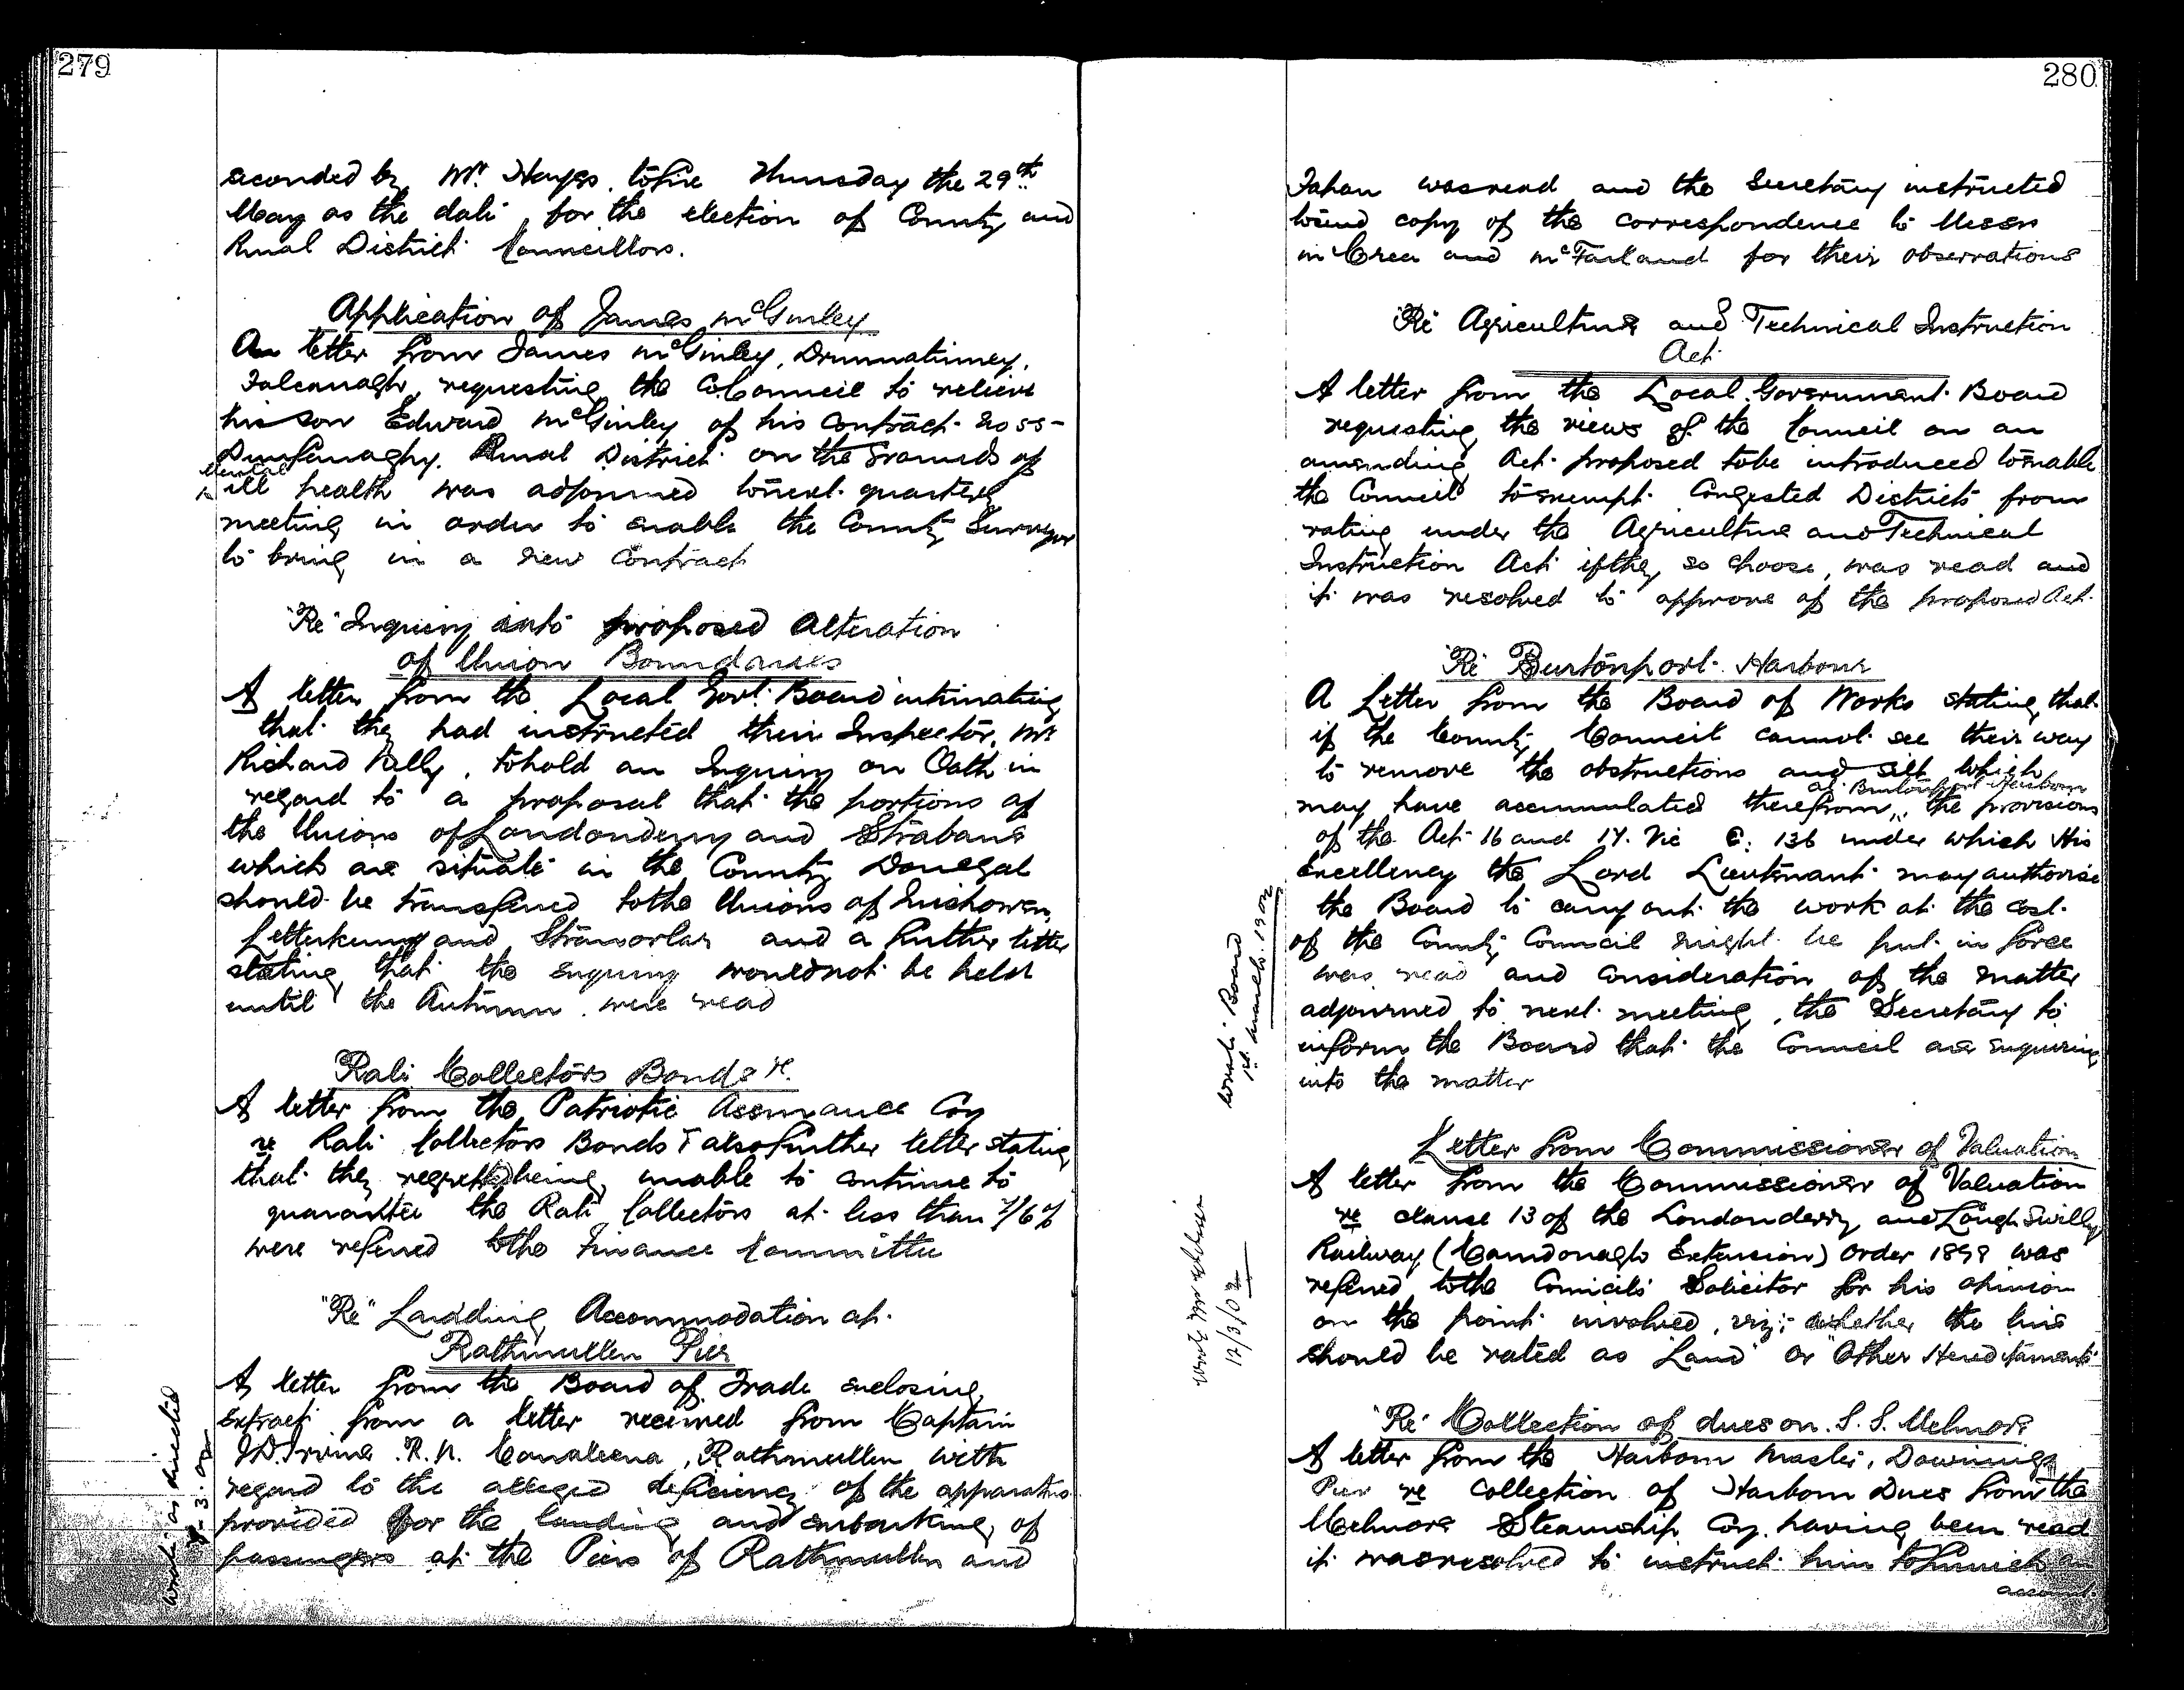 279
seconded by Mr. Hayes, to fix Thursday the 29th
May as the date for the election of County and
Rural District Councillors.
Application of James McGinley
A letter from James McGinley, Drumnatinney,
Falcarragh, requesting the Co. Council to relieve
his son Edward McGinley of his contract No 55-
Dunfanaghy Rural District on the grounds of
mental
ill health was adjourned to next quarterly
meeting in order to enable the County Surveyor
to bring in a new contract
"Re" Inquiry into proposed alteration
of Union Boundaries
A letter from the Local Govt. Board intimating
that they had instructed their Inspector, Mr
Richard Kelly, to hold an Inquiry on Oath in
regard to a proposal that the portions of
the Unions of Londonderry and Strabane
which are situate in the County Donegal
should be transferred to the Unions of Inishowen,
Letterkenny and Stranorlar and a further letter
stating that the enquiry would not be held
until the Autumn were read
Rate Collectors Bonds re.
A letter from the Patriotic Assurance Coy
re Rate Collectors Bonds & also further letter stating
that they regretted being unable to continue to
guarantee the Rate Collectors at less than 7/6 %
were referred to the Finance Committee
"Re" Landing Accommodation at
Rathmullen Pier
A letter from the Board of Trade enclosing
extract from a letter received from Captain
J.D. Irvine R.N. Rathmullen with
regard to the alleged deficiency of the apparatus
provided for the landing and embarking of
passengers at the Piers of Rathmullen and
wrote as directed
3.02
280
Fahan was read and the Secretary instructed
to send copy of the correspondence to Messrs
McCrea and McFarland for their observations
"Re" Agriculture and Technical Instruction
Act
A letter from the Local Government Board
requesting the views of the Council on an
amending Act proposed to be introduced to enable
the Council to exempt Congested Districts from
rating under the Agriculture and Technical
Instruction Act if they so choose, was read and
it was resolved to approve of the proposed Act.
"Re" Burtonport Harbour
A Letter from the Board of Works stating that
if the County Council cannot see their way
to remove the obstructions and silt which
at Burtonport Harbour
may have accumulated therefrom, the provisions
of the Act 16 and 17. Vic C. 136 under which His
Excellency the Lord Lieutenant may authorise
the Board to carry out the work at the cost
of the County Council might be put in force
was read and consideration of the matter
adjourned to next meeting, the Secretary to
inform the Board that the Council are enquiring
into the matter
wrote Board
1st March 1902
Letter from Commissioner of Valuation
A letter from the Commissioner of Valuation
re clause 13 of the Londonderry and Lough Swilly
Railway (Carndonagh Extension) Order 1898 was
referred to the Councils' Solicitor for his opinion
on the point involved, viz:- whether the line
should be rated as "Land" or "Other Hereditaments"
12/3/02
"Re" Collection of dues on S.S. Melmore
A letter from the Harbour Master, Downings
Pier re collection of Harbour Dues from the
Melmore Steamship Coy. having been read
it was resolved to instruct him to furnish an
account.